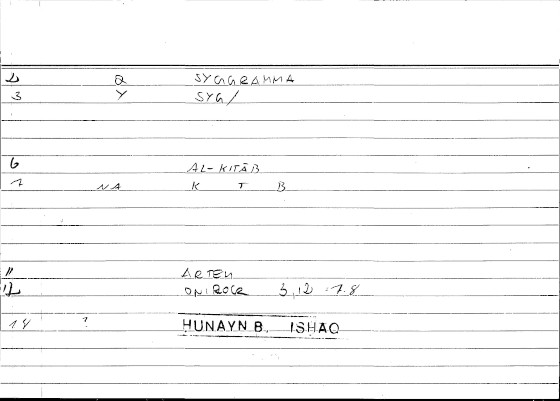 2 Q SYGGRAMMA
3 Y SYG/
6 AL-KITĀB
7 NA K T B
11 ARTEM
12 ONIROCR 3,12 -7.8
14 ? HUNAYN B. ISHAQ